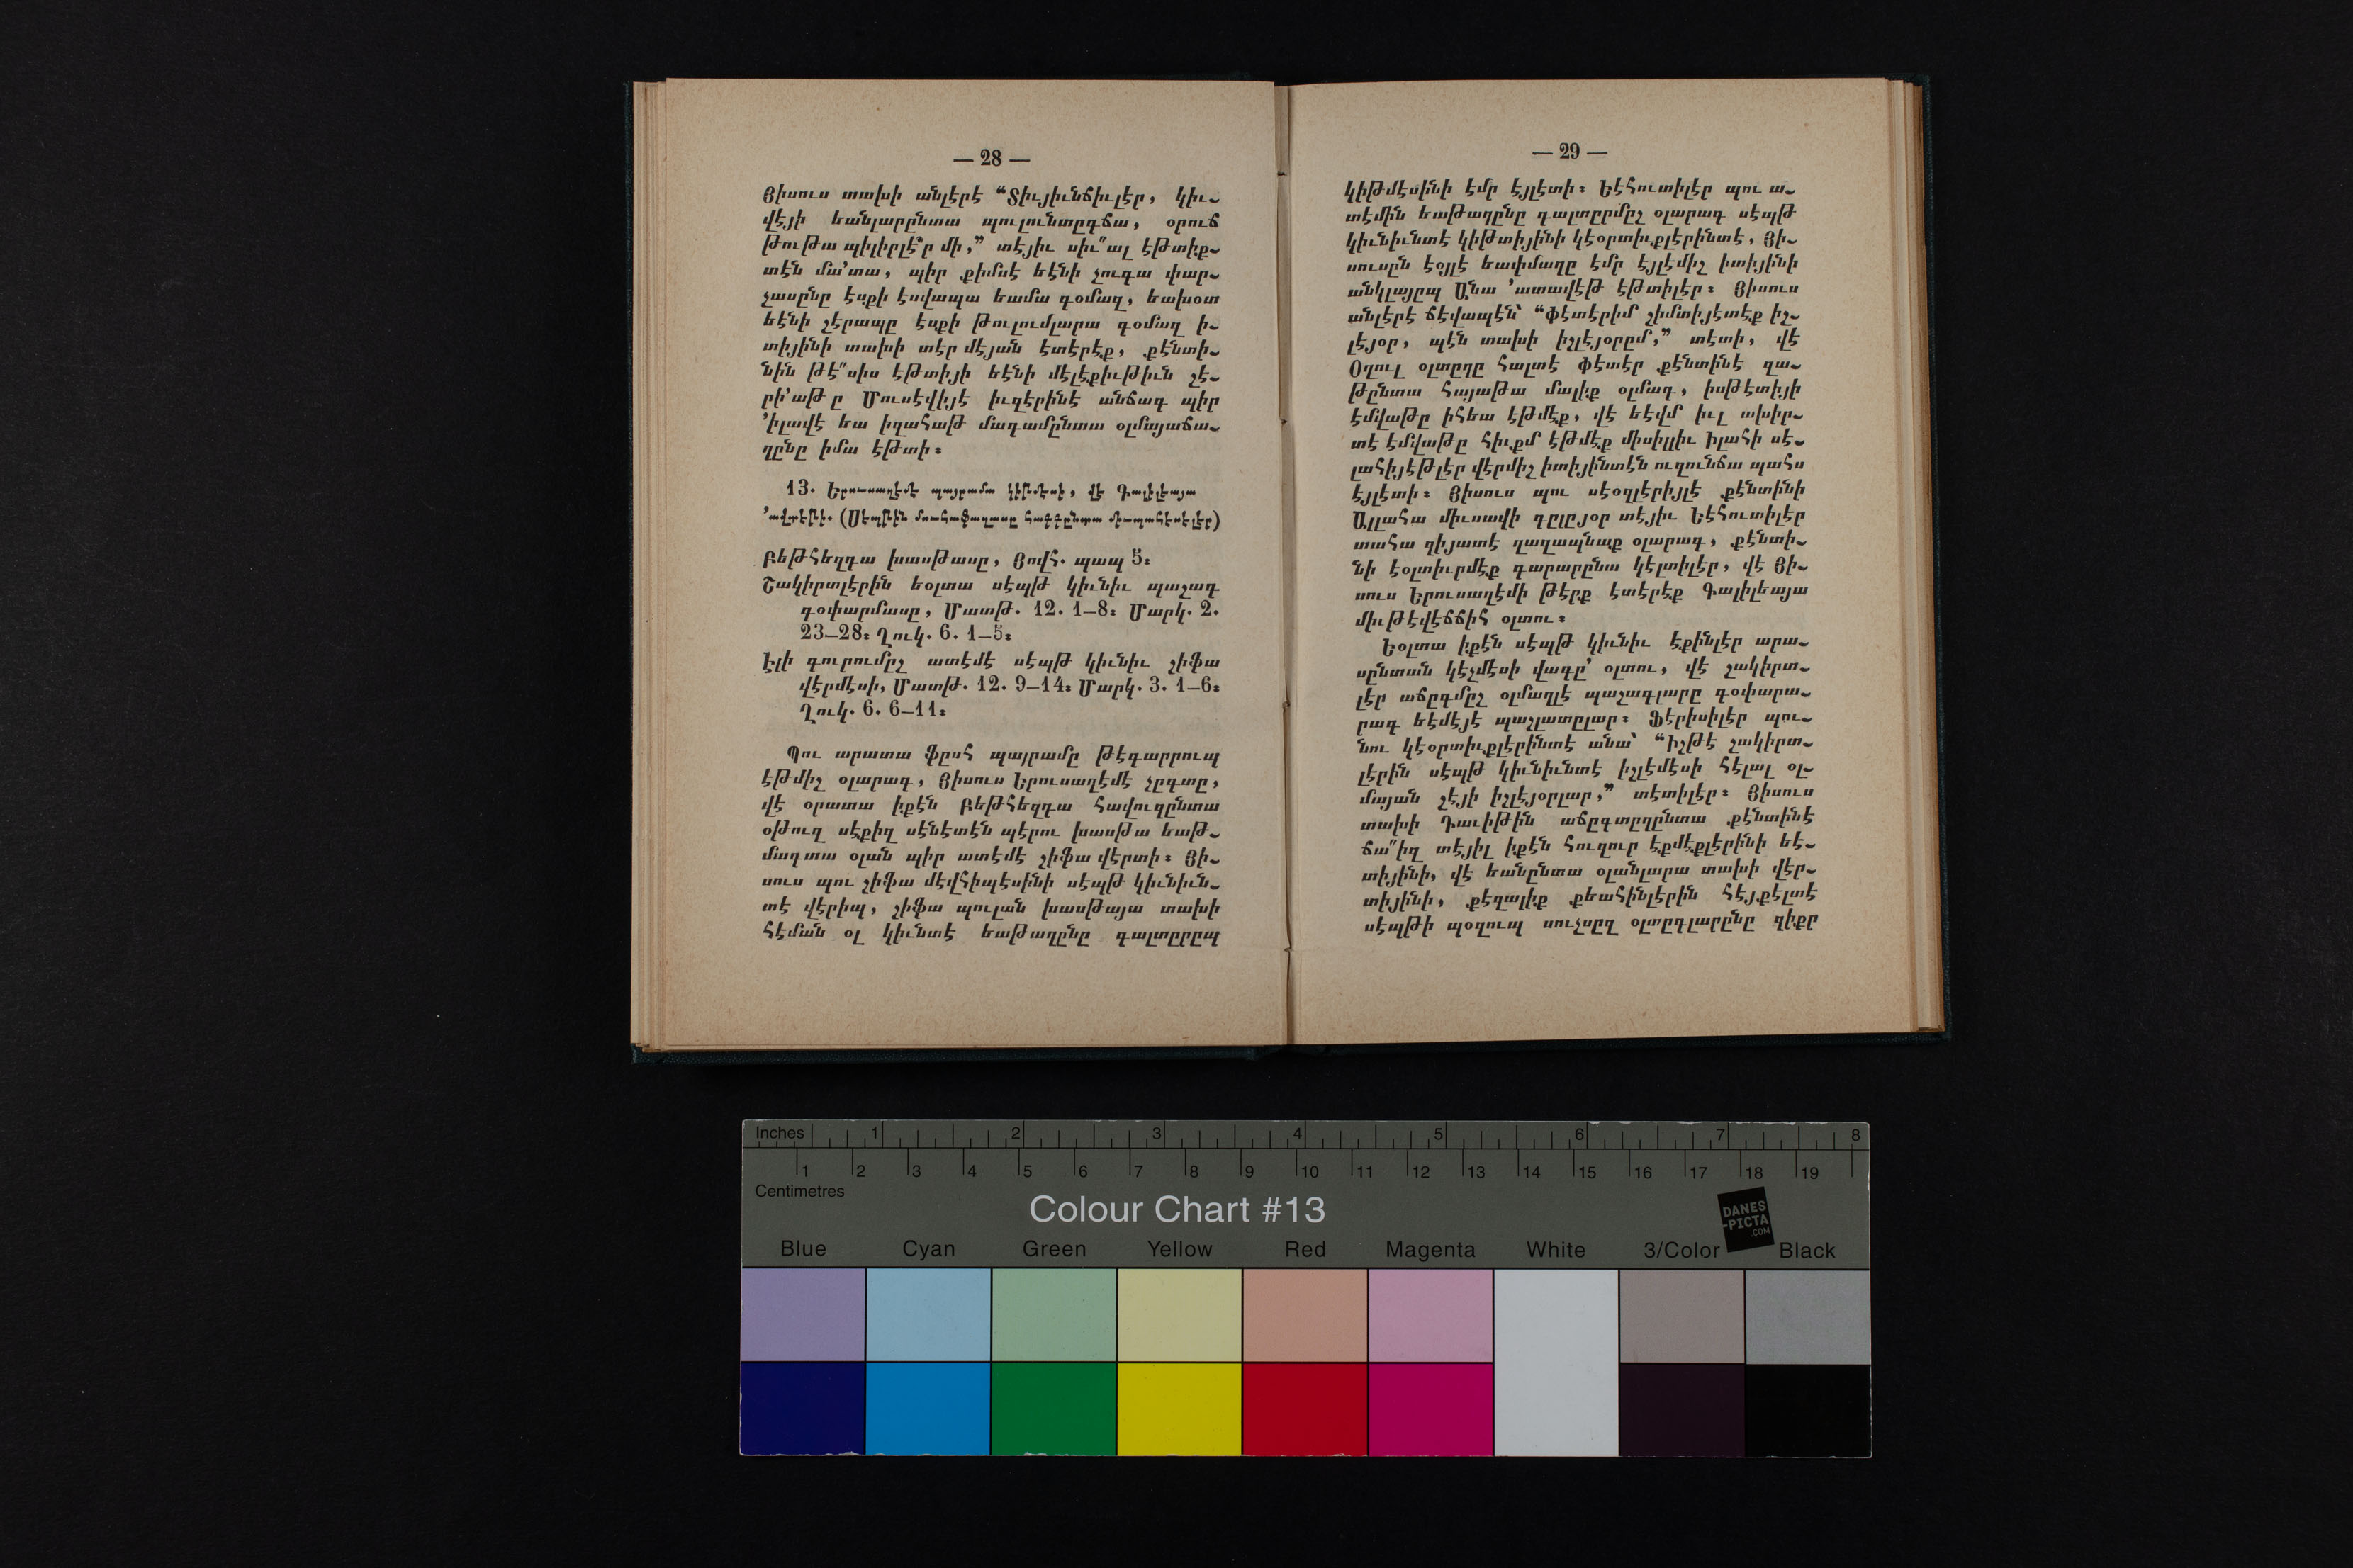 — 28 —
Յիսուս տախի անլէրէ “Տիւյիւնճիւլէր, կիւ֊
վէյի եանլարընտա պուլունտըգճա, օրուճ
թութա պիլիրլէ՞ր մի,” տէյիւ սիւ՚՚ալ էթտիք֊
տէն մա՚տա, պիր քիմսէ եէնի չուգա փար֊
չասընը էսքի էսվապա եամա գօմազ, եախօտ
եէնի շէրապը էսքի թուլումլարա գօմաղ ի֊
տիյինի տախի տէր մէյան էտէրէք, քէնտի֊
նին թէ՚՚սիս էթտիյի եէնի մէլէքիւթիւն շէ֊
րի՚աթ ը Մուսէվիյէ իւզէրինէ անճագ պիր
՚իլավէ եա իղահաթ մագամընտա օլմայաճա֊
ղընը իմա էթտի։
13. Երուսաղէմէ պայրամա կիթմէսի, վէ Գալիլեայա
՚ավտէթի. (Սէպթին մուհաֆաղասը հաքքընտա մուպահէսէլէր)
Բեթհեզդա խասթասը, Յովհ. պապ 5։
Շակիրտլէրին եօլտա սէպթ կիւնիւ պաշագ
գօփարմասը, Մատթ. 12. 1–8։ Մարկ. 2.
23–28։ Ղուկ. 6. 1–5։
Էլի գուրումըշ ատէմէ սէպթ կիւնիւ շիֆա
վէրմէսի, Մատթ. 12. 9–14։ Մարկ. 3. 1–6։
Ղուկ. 6. 6–11։
Պու արատա ֆըսհ պայրամը թէգարրուպ
էթմիշ օլարագ, Յիսուս Երուսաղէմէ չըգտը,
վէ օրատա իքէն Բեթհեզդա հավուզընտա
օթուզ սէքիզ սէնէտէն պէրու խասթա եաթ֊
մագտա օլան պիր ատէմէ շիֆա վէրտի։ Յի֊
սուս պու շիֆա մէվհիպէսինի սէպթ կիւնիւն֊
տէ վէրիպ, շիֆա պուլան խասթայա տախի
հէման օլ կիւնտէ եաթաղընը գալտըրըպ
— 29 —
կիթմէսինի էմր էյլէտի։ Եէհուտիլէր պու ա֊
տէմին եաթաղընը գալտըրմըշ օլարագ սէպթ
կիւնիւնտէ կիթտիյինի կէօրտիւքլէրինտէ, Յի֊
սուսըն էօյլէ եափմաղը էմր էյլէմիշ իտիյինի
անկլայըպ Անա ՚ատավէթ էթտիլէր։ Յիսուս
անլէրէ ճէվապէն՝ “Ֆէտէրիմ շիմտիյէտէք իշ֊
լէյօր, պէն տախի իշլէյօրըմ,” տէտի, վէ
Օղուլ օլտըղը հալտէ Ֆէտէր քէնտինէ զա֊
թընտա հայաթա մալիք օլմագ, իսթէտիյի
էմվաթը իհեա էթմէք, վէ եէվմ իւլ ախիր֊
տէ էմվաթը հիւքմ էթմէք միսիլլիւ իլահի սէ֊
լահիյէթլէր վէրմիշ իտիյինտէն ուզունճա պահս
էյլէտի։ Յիսուս պու սէօզլէրիյլէ քէնտինի
Ալլահա միւսավի գըլըյօր տէյիւ Եէհուտիլէր
տահա զիյատէ ղաղապնաք օլարագ, քէնտի֊
նի էօլտիւրմէք գարարընա կէլտիլէր, վէ Յի֊
սուս Երուսաղէմի թէրք էտէրէք Գալիլեայա
միւթէվէճճիհ օլտու։
Եօլտա իքէն սէպթ կիւնիւ էքինլէր արա֊
սընտան կէչմէսի վագը՚ օլտու, վէ շակիրտ֊
լէր աճըգմըշ օլմաղլէ պաշագլարը գօփարա֊
րագ եէմէյէ պաշլատըլար։ Ֆէրիսիլէր պու֊
նու կէօրտիւքլէրինտէ անա՝ “Իշթէ շակիրտ֊
լէրին սէպթ կիւնիւնտէ իշլէմէսի հէլալ օլ֊
մայան շէյի իշլէյօրլար,” տէտիլէր։ Յիսուս
տախի Դաւիթին աճըգտըղընտա քէնտինէ
ճա՚՚իզ տէյիլ իքէն հուզուր էքմէքլէրինի եէ֊
տիյինի, վէ եանընտա օլանլարա տախի վէր֊
տիյինի, քէզալիք քեահինլէրին հէյքէլտէ
սէպթի պօզուպ սուչսըզ օլտըգլարընը զիքր
Inches 1 2 3 4 5 6 7 8
1 2 3 4 5 6 7 8 9 10 11 12 13 14 15 16 17 18 19
Centimetres
Colour Chart #13
DANES
-PICTA
.COM
Blue Cyan Green Yellow Red Magenta White 3/Color Black